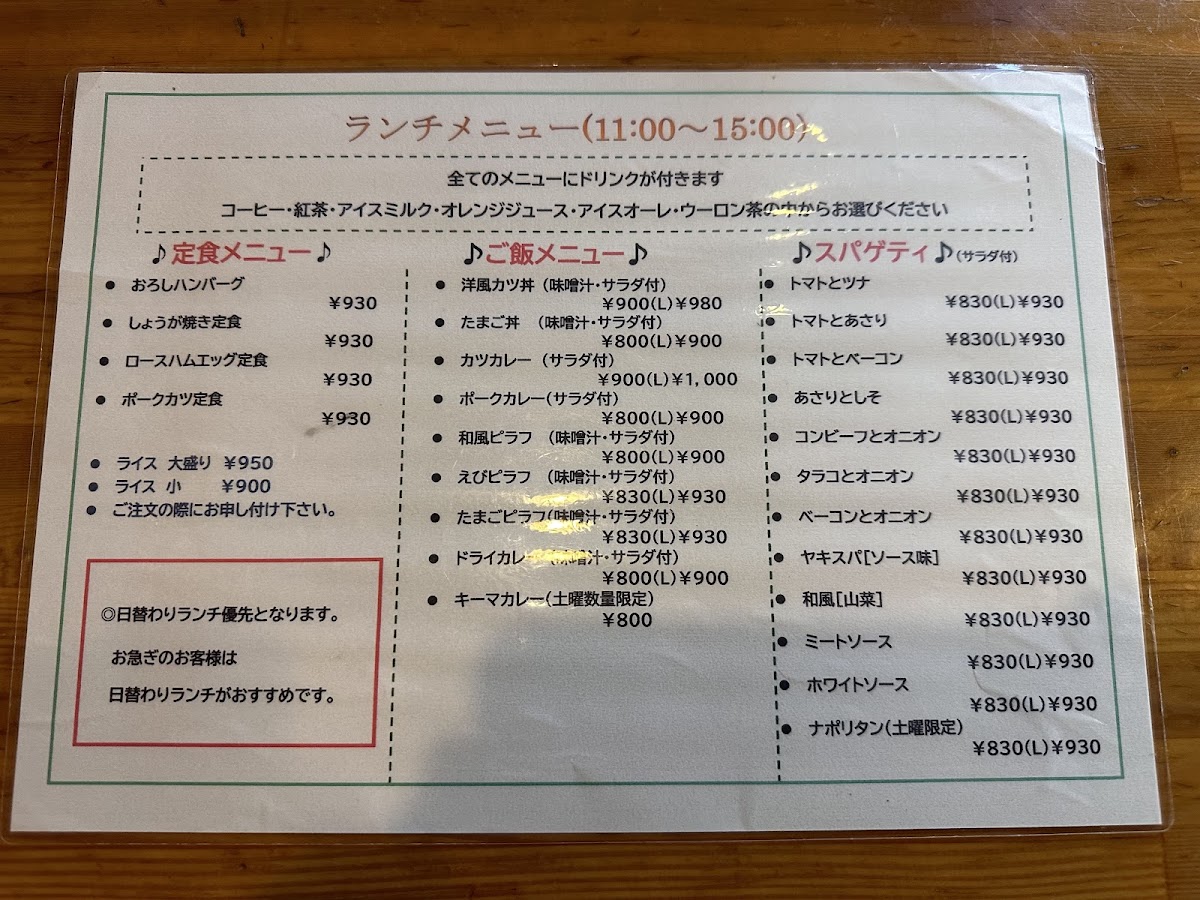 ランチメニュー(11:00～15:00)
全てのメニューにドリンクが付きます
コーヒー・紅茶・アイスミルク・オレンジジュース・アイスオーレ・ウーロン茶の中からお選びください
♪定食メニュー♪
● おろしハンバーグ
￥930
● しょうが焼き定食
￥930
● ロースハムエッグ定食
￥930
● ポークカツ定食
￥930
● ライス 大盛り ￥950
● ライス 小 ￥900
● ご注文の際にお申し付け下さい。
◎日替わりランチ優先となります。
お急ぎのお客様は
日替わりランチがおすすめです。
♪ご飯メニュー♪
● 洋風カツ丼（味噌汁・サラダ付）
￥900(L)￥980
● たまご丼 （味噌汁・サラダ付）
￥800(L)￥900
● カツカレー（サラダ付）
￥900(L)￥1,000
● ポークカレー（サラダ付）
￥800(L)￥900
● 和風ピラフ （味噌汁・サラダ付）
￥800(L)￥900
● えびピラフ （味噌汁・サラダ付）
￥830(L)￥930
● たまごピラフ（味噌汁・サラダ付）
￥830(L)￥930
● ドライカレー（味噌汁・サラダ付）
￥800(L)￥900
● キーマカレー（土曜数量限定）
￥800
♪スパゲティ♪（サラダ付）
● トマトとツナ
￥830(L)￥930
● トマトとあさり
￥830(L)￥930
● トマトとベーコン
￥830(L)￥930
● あさりとしそ
￥830(L)￥930
● コンビーフとオニオン
￥830(L)￥930
● タラコとオニオン
￥830(L)￥930
● ベーコンとオニオン
￥830(L)￥930
● ヤキスパ[ソース味]
￥830(L)￥930
● 和風[山菜]
￥830(L)￥930
● ミートソース
￥830(L)￥930
● ホワイトソース
￥830(L)￥930
● ナポリタン（土曜限定）
￥830(L)￥930